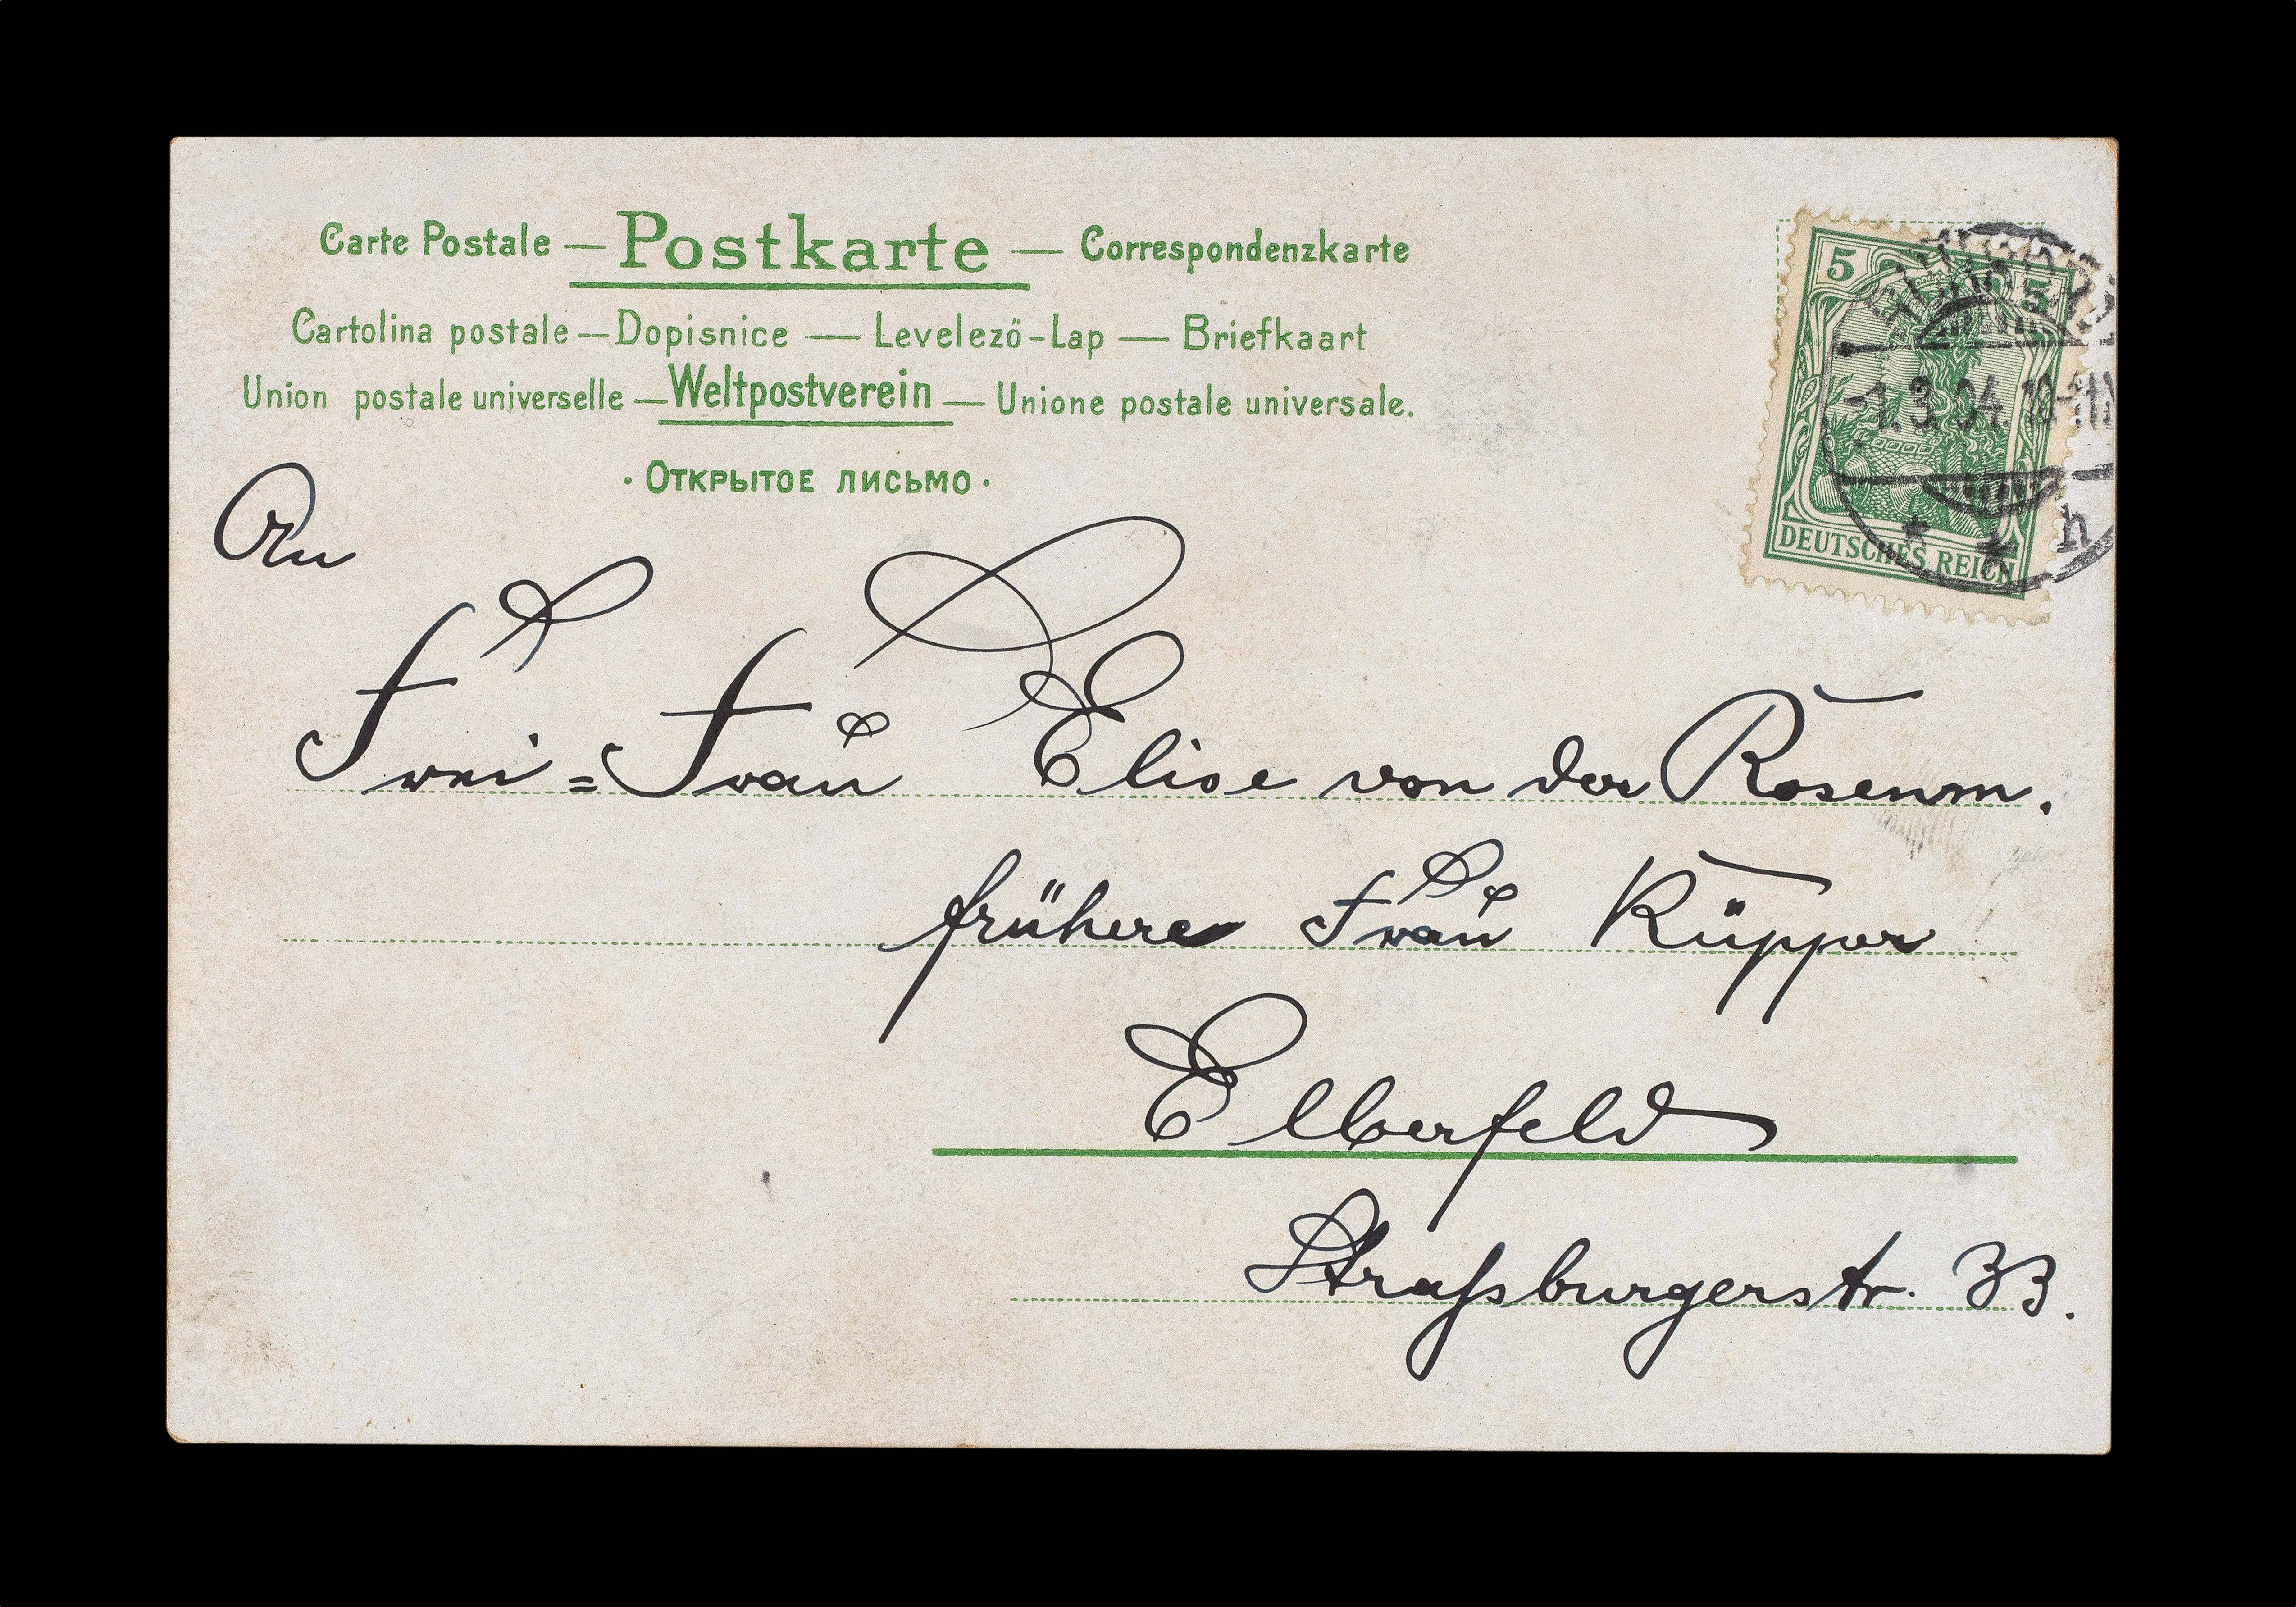 Carte Postale — Postkarte — Correspondenzkarte
Cartolina postale — Dopisnice — Levelező-Lap — Briefkaart
Union postale universelle — Weltpostverein — Unione postale universale.
· Открытое письмо ·
5 5
1.3.04. 10-11
h
DEUTSCHES REICH
An
Frei=Frau Elise von der Rosenm.
frühere Frau Küpper
Elberfeld
Straßburgerstr. 33.